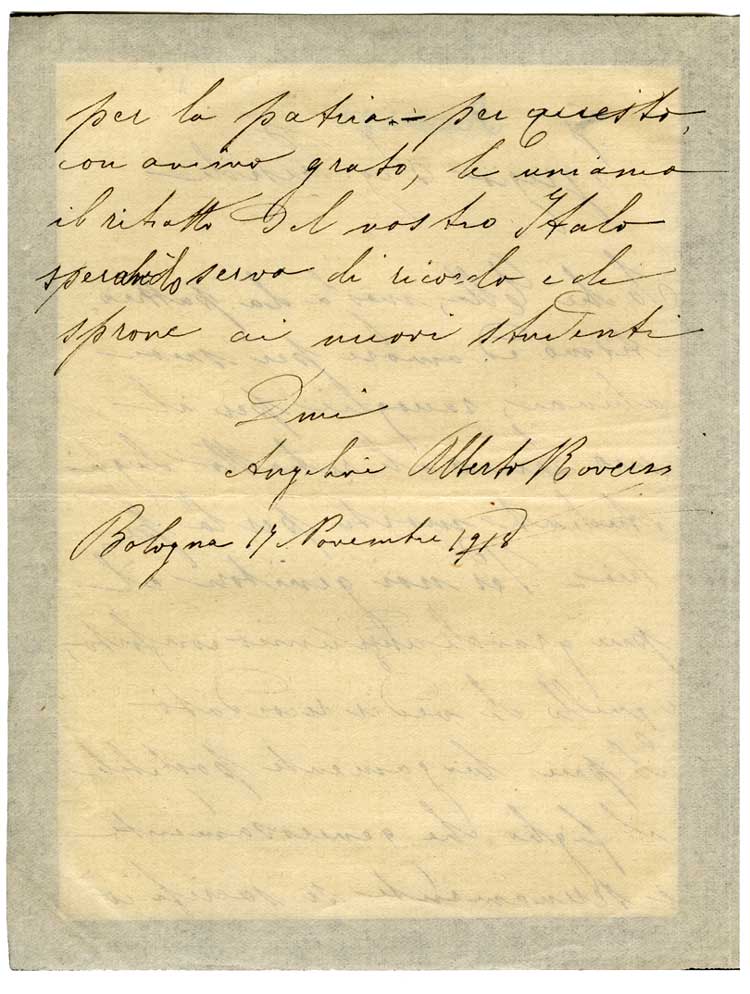 per la patria. – per questo,
con animo grato, le uniamo
il ritratto del nostro Italo
sperando serva di ricordo e di
sprone ai nuovi studenti
Dmi
Angelini Alberto Roversi
Bologna 17 Novembre 1918